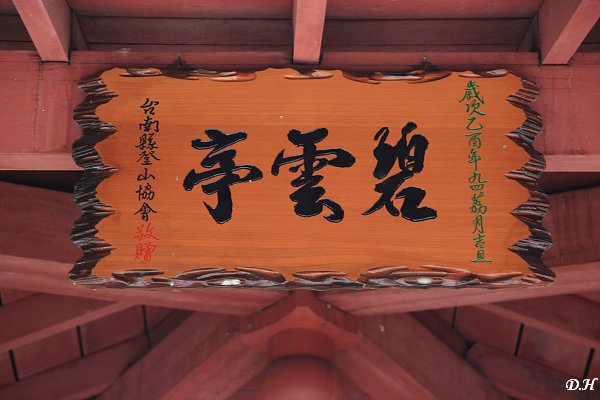 歲次乙酉年九四荔月吉旦
碧雲亭
台南縣登山協會敬贈
D.H